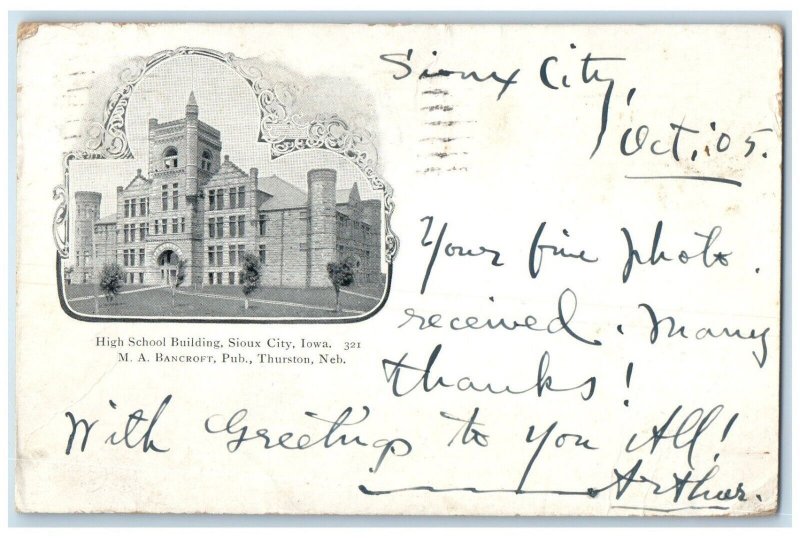 Sioux City,
Oct, '05.
Your fine photo.
received. Many
thanks!
With Greetings to you All!
Arthur.
High School Building, Sioux City, Iowa. 321
M. A. BANCROFT, Pub., Thurston, Neb.